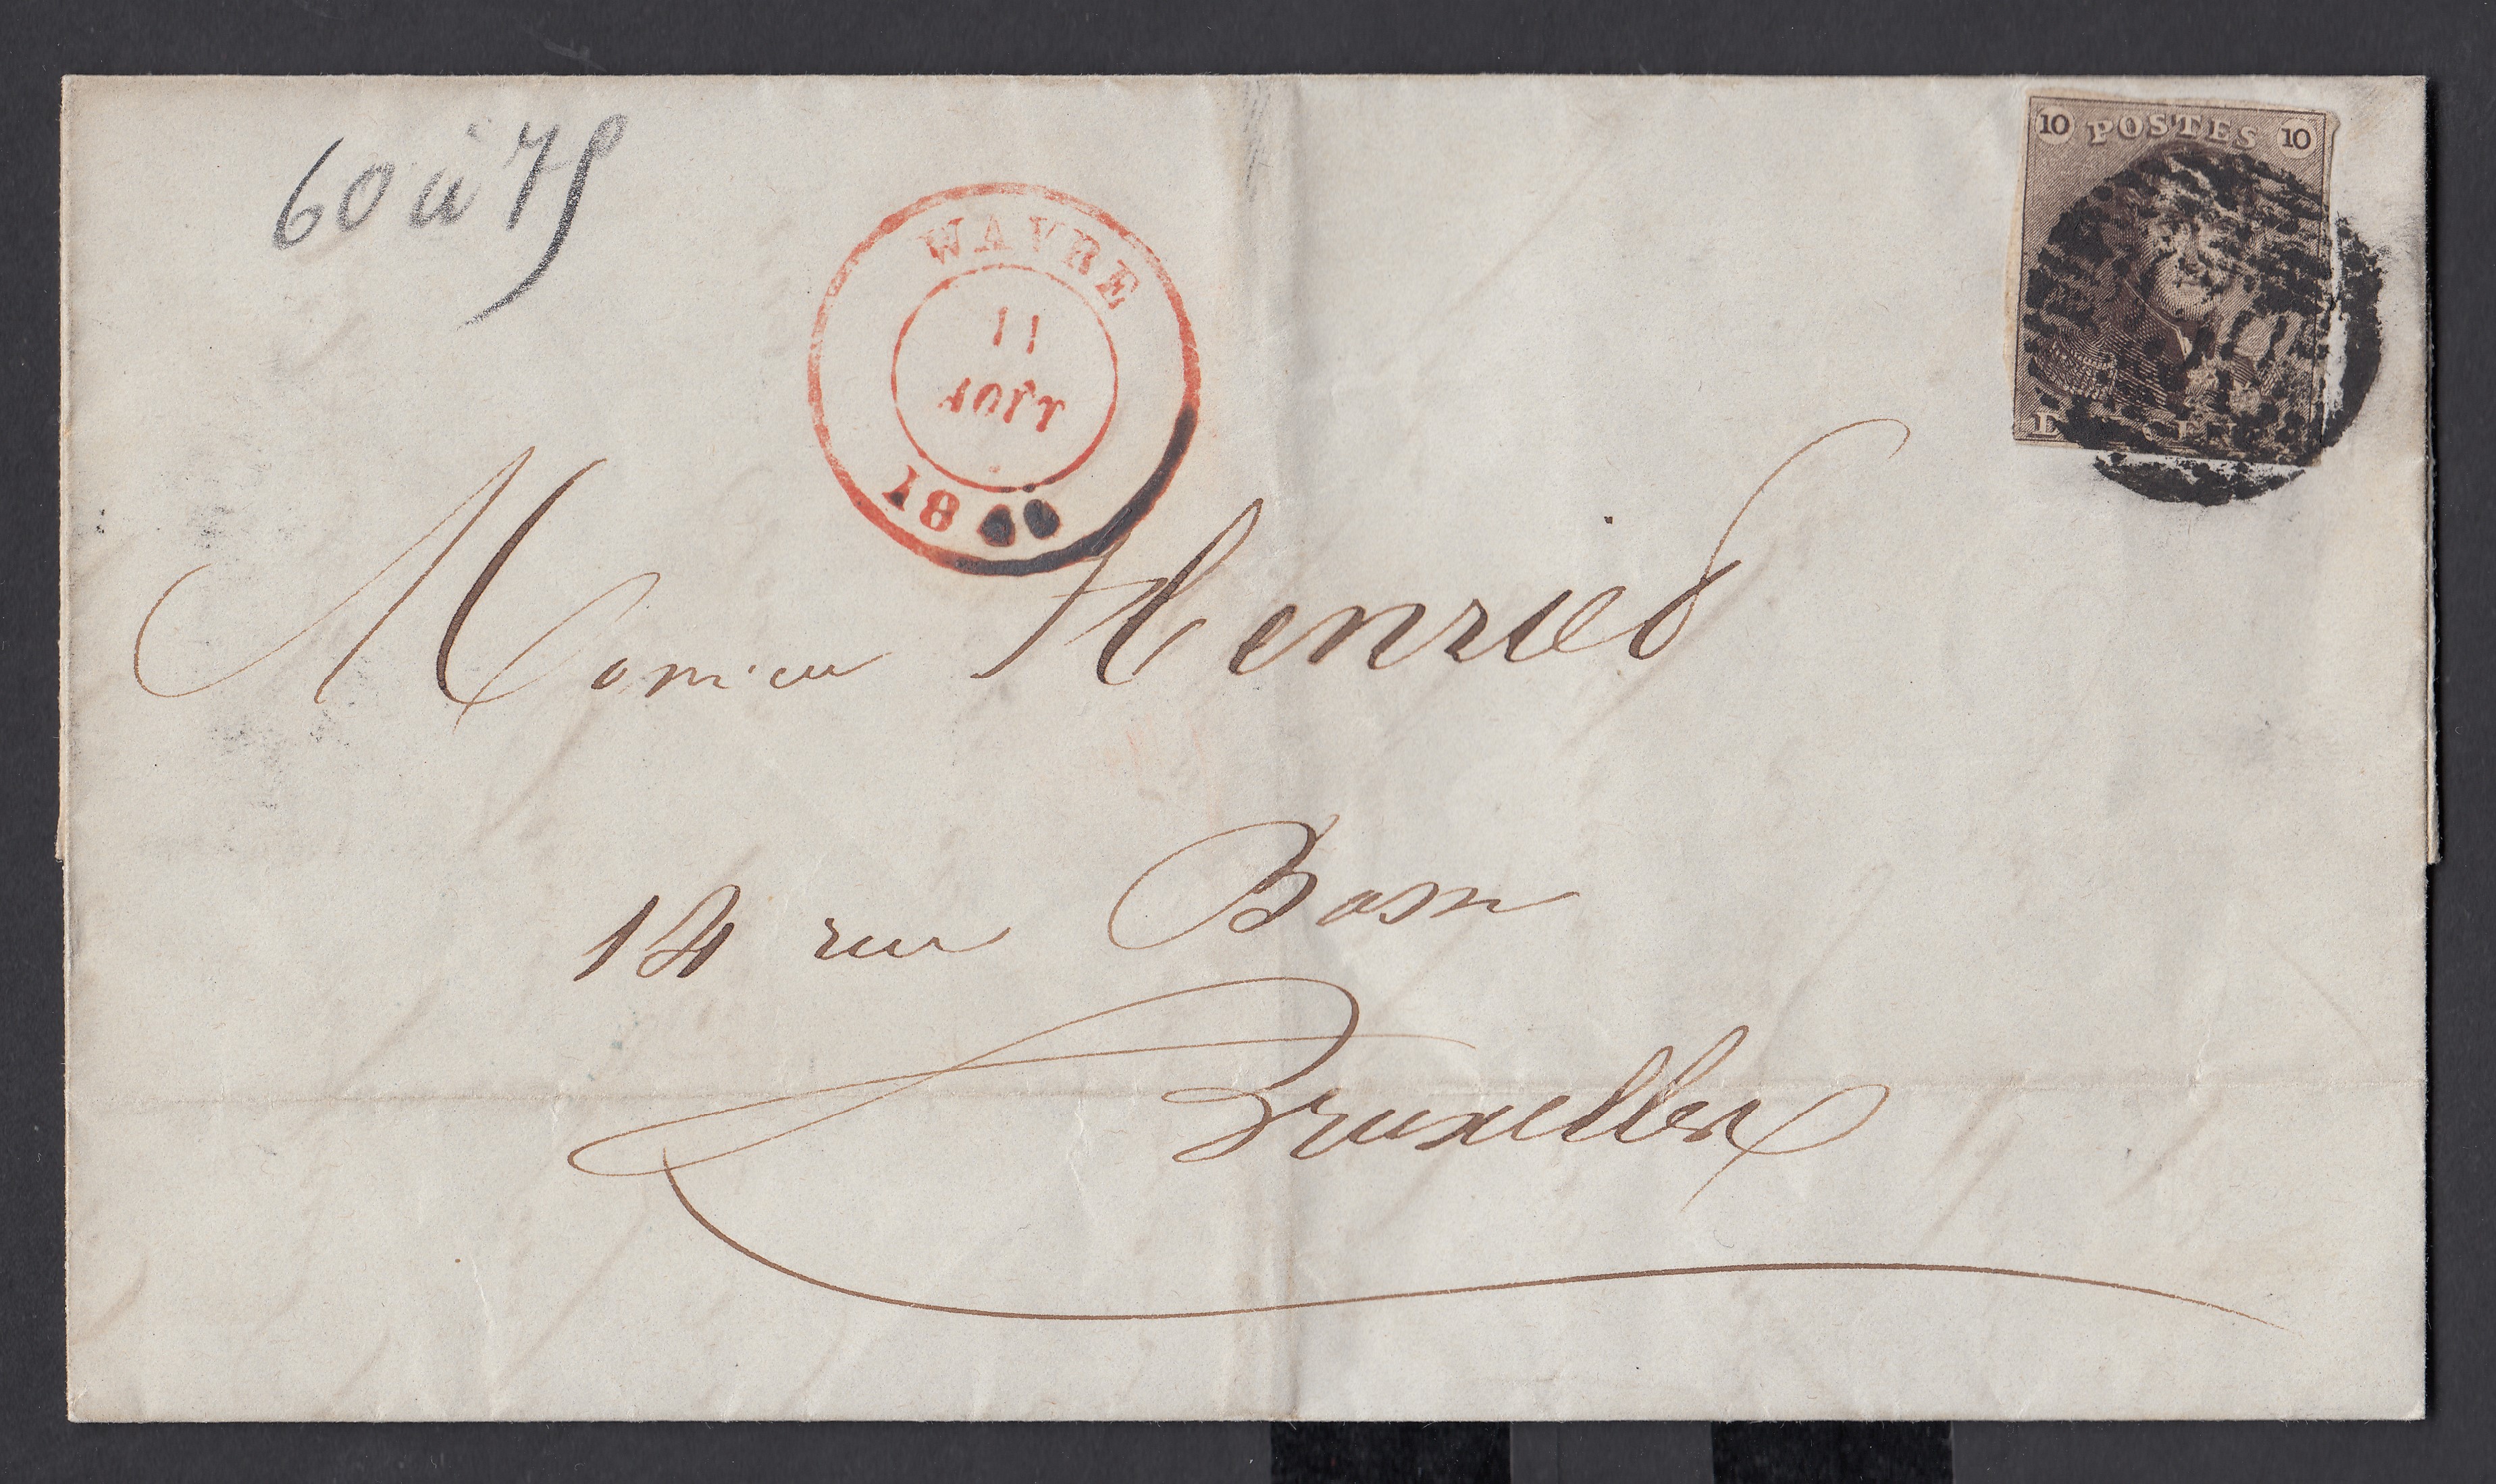 60 à 75
WAVRE
11
AOUT
18
10 POSTES 10
Monsieur Henries
14 rue
Bruxelles